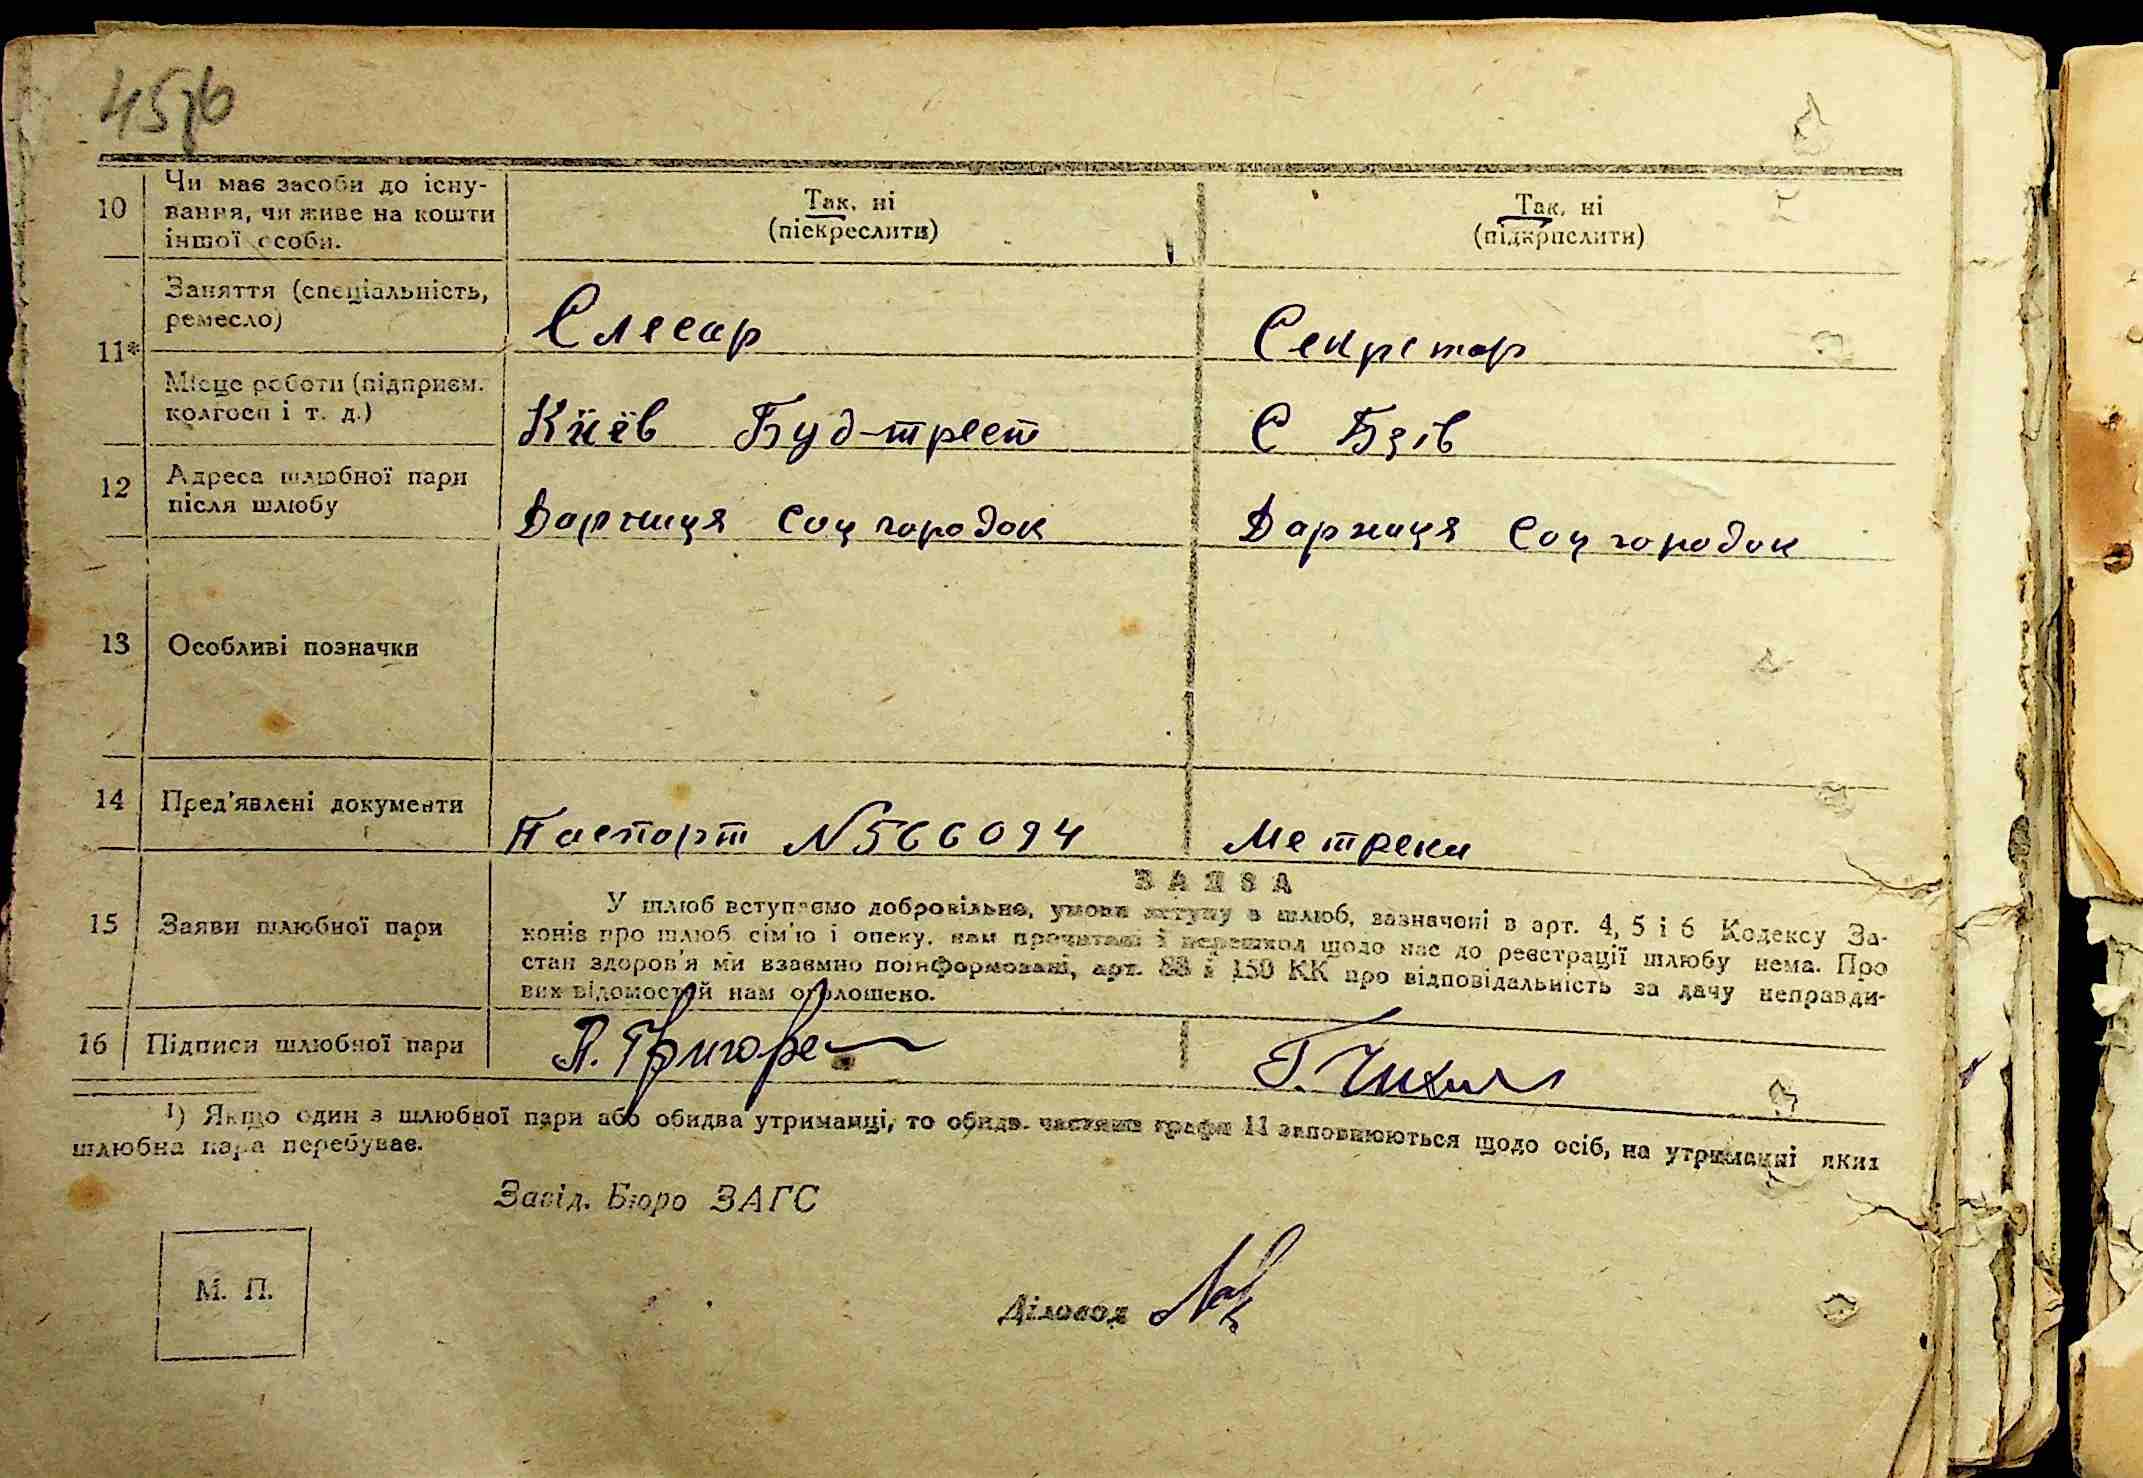 45
10 Чи має засоби до існу-
вання, чи живе на кошти
іншої особи.
Так, ні
(піекреслити)
Так, ні
(підкрпслити)
11* Заняття (спеціальність,
ремесло)
Слесар
Секретар
Місце роботи (підприєм.
колгосп і т. д.)
Київ Буд-трест
С Бзів
12 Адреса шлюбної пари
після шлюбу
Дарниця Соц городок
Дарниця Соц городок
13 Особливі позначки
14 Пред'явлені документи
Паспорт №566094
Метреки
ЗАЯВА
15 Заяви шлюбної пари
У шлюб вступаємо добровільно, умови вступу в шлюб, зазначені в арт. 4, 5 і 6 Кодексу За-
конів про шлюб сім'ю і опеку, нам прочитані і перешкод щодо нас до реєстрації шлюбу нема. Про
стан здоров'я ми взаємно поінформовані, арт. 88 і 150 КК про відповідальність за дачу неправди-
вих відомостей нам оголошено.
16 Підписи шлюбної пари
Г.
¹) Якщо один з шлюбної пари або обидва утриманці, то обидв. частини графи 11 заповнюються щодо осіб, на утриманні яких
шлюбна пара перебуває.
Завід. Бюро ЗАГС
М. П.
Діловод